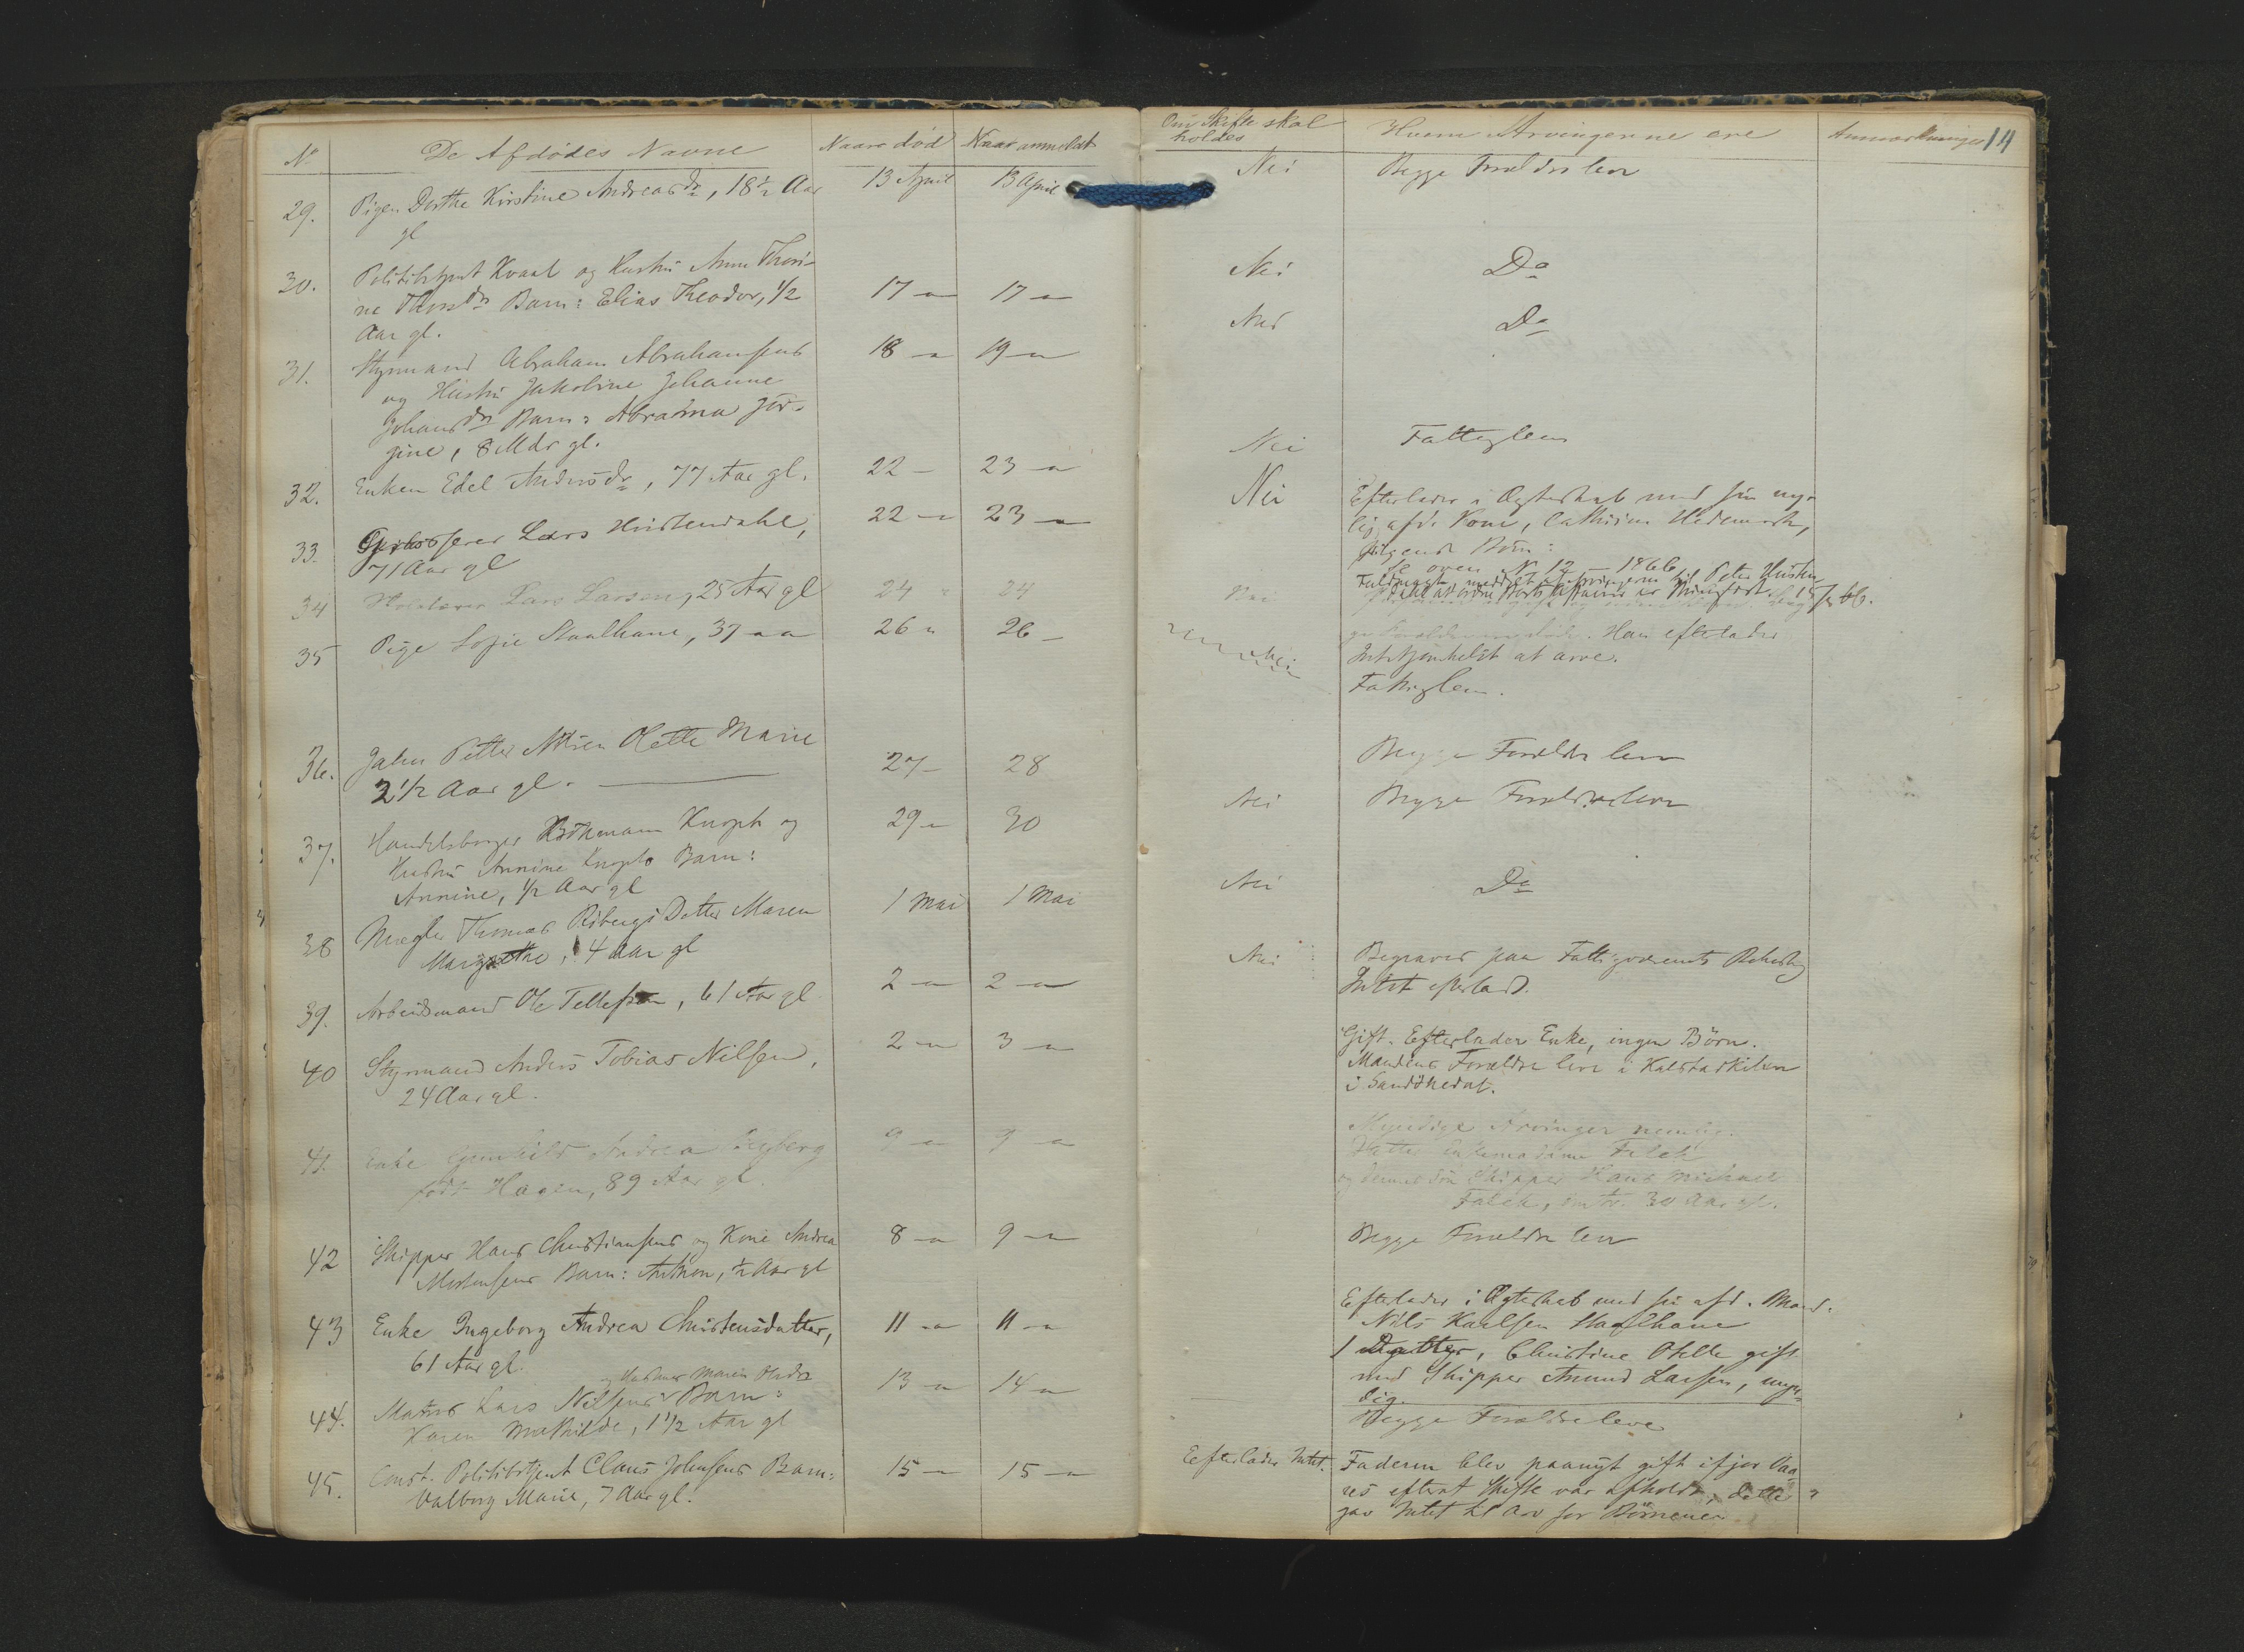 No De Afdødes Navne Naar død Naar anmeldt
29. Pigen Dorthe Kirstine Andreasdr, 18 1/2 Aar 13 April 13 April
gl
30. Politibetjent Kvaal og Hustru Anne Thori-
ne Thorsdrs Barn: Elias Theodor, 1/2 17 " 17 "
Aar gl.
31. Styrmand Abraham Abrahamsens 18 " 19 "
og Hustru Jakobine Johanne
Johansdrs Barn: Abramine Jör-
gine, 8 Mdr gl.
32. Enken Edel Andersdr, 77 Aar gl. 22 – 23 "
33. Lars Christendahl, 22 " 23 "
71 Aar gl
34 Lars Larsen, 25 Aar gl 24 " 24
35 Pige Sofie Staalhane, 37 " " 26 " 26 –
36. Jahn Petter Olette Marie
2 1/2 Aar gl. 27 – 28
37. Handelsborger Knoph og 29 " 30
Hustru Annine Knophs Barn:
Annine, 1/2 Aar gl
38 Mægler Thomas Ribergs Datter Maren 1 Mai 1 Mai
Margrethe, 4 Aar gl
39. Arbeidsmand Ole Tellefsen, 61 Aar gl 2 " 2 "
40 Styrmand Anders Tobias Nilsen, 2 " 3 "
24 Aar gl.
41. Enke Gunhild Andrea 9 " 9 "
født Hagen, 89 Aar gl.
42 Skipper Hans Christiansens og Kone Andrea 8 " 9 "
Mortensens Barn: Anthon, 1/2 Aar gl
43 Enke Ingeborg Andrea Christensdatter, 11 " 11 "
61 Aar gl.
og Hustrues Maren Olsdrs
44. Matros Lars Nilsens Barn: 13 " 14 "
Karen Mathilde, 1 1/2 Aar gl
45. Const. Politibetjent Claus Johnsens Barn: 15 – 15 "
Valborg Marie, 7 Aar gl.
Om Skifte skal
holdes Hvem Arvingerne ere Anmærkninger 14
Nei Begge Forældre leve
Nei Do
Nei Do
Nei Fattiglem
Nei Efterlader i Ægteskab med sin ny-
lig afd. Kone, Cathrine Hedemark,
følgende Börn:
Se oven No 12 – 1866
Fuldmagt, meddelt af Arvingerne til Peter Christen-
Nei
Forældre . Han efterlader
Nei Intetsomhelst at arve.
Fattiglem.
Begge Forældre leve
Nei Begge Forældre leve
Nei Do
Nei Begraves paa Fattigvæsenets Bekostng
Intet efterladt.
Gift. Efterlader Enke, ingen Börn.
Mandens Forældre leve i Kalstadkilen
i Sandökedal.
Myndige Arvinger nemlig:
Datter Enkemadame Falck
og dennes Sön Skipper Hans Michael
Falck, omtr. 30 Aar gl.
Begge Forældre leve
Efterlader i Ægteskab med sin afd. Mand
Nils Karlsen Staalhane
1 Datter, Christine Otelle gift
med Skipper Amund Larsen, myn-
dig.
Begge Forældre leve
Eefterlader Intet. Faderen blev paanyt gift ifjor Vaa-
res efterat Skifte var afholdt, dette
gav Intet til Arv for Börnene.